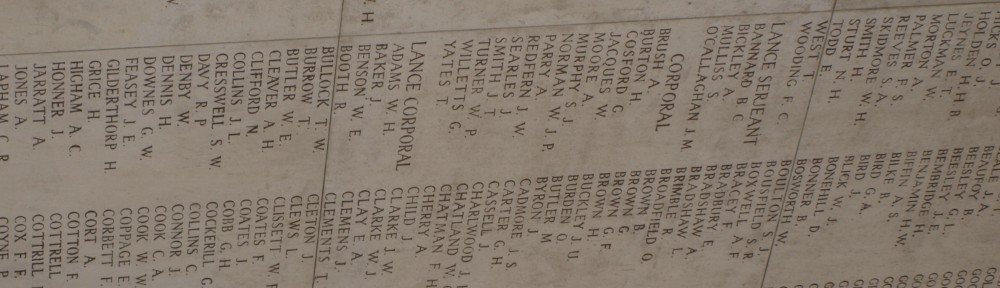 HOLDEN O. J.
JEYNES H. H. R.
LUCKMAN E. T.
MORTON W.
PALMER A.
REEVES F. S.
SKIDMORE S. A.
SMITH W. H.
STURT N. H.
TODD E.
WEST T.
WOODING F. C.
LANCE SERJEANT
BANNARD B. C.
BICKLEY A.
MULLIS S.
OCALLAGHAN J. M.
BRUSH A.
BURTON H.
CORPORAL
COSFORD G.
JACQUES W.
MOORE W.
MURPHY S. J.
NORMAN A.
PARRY A. W. J. P.
REDFERN J.
SEARLES J. W.
SMITH J. T.
TURNER W. P.
WILLETTS G.
YATES T.
LANCE CORPORAL
ADAMS W. H.
BAKER J.
BENSON W. E.
BOOTH R.
BULLOCK T. W.
BURROW T.
BUTLER W. E.
CLEAVER A. H.
CLIFFORD N.
COLLINS J. L.
CRESSWELL S. W.
DAVY R. P.
DENBY W.
DENNIS H.
DOWNES G. W.
FEASEY J. E.
GILBERT J.
GILDERTHORP H.
GRICE H.
HIGHAM A. C.
HONNER J.
JARRATT A.
JONES A.
LAPHAM C. R.
BEAUFOY B.
BEESLEY B.
BEESLEY G. L.
BEMBRIDGE J. E.
BENJAMIN H.
BIFFIN H. W.
BILKE A. S.
BIRD G. A.
BIRD J.
BLICK W. J.
BONEHILL J.
BONNER B. D.
BOSWORTH W.
BOULTON W.
BOUSFIELD S. J.
BOXWELL S. R.
BRACEY A. F.
BRADBURY F.
BRADSHAW E.
BRADSHAW A.
BRIMBLE R. L.
BROADFIELD O.
BROWN B.
BROWN G.
BROWN G.
BROWN G. F.
BUCKLEY J. U.
BURDEN O.
BUTLER M.
BYRON J.
CADMORE J. S.
CARTER G. H.
CASSELL J.
CHARLWOOD J.
CHATLAND W.
CHATMAN F. H.
CHERRY A.
CHILD J.
CLARKE J. W.
CLARKE W. J.
CLAY E. A.
CLEMENS J.
CLEMENTS T.
CLETON J.
CLEWS L.
CLISSETT W.
COATES F.
COATES J.
COBB G. H.
COCKERILL
COLLINS C.
CONNOR J.
COOK C. A.
COOK W. W.
COPPAGE E.
CORT A.
COTTON F.
COTTRELL
COTTRILL
COX F. E.
COYNE P.